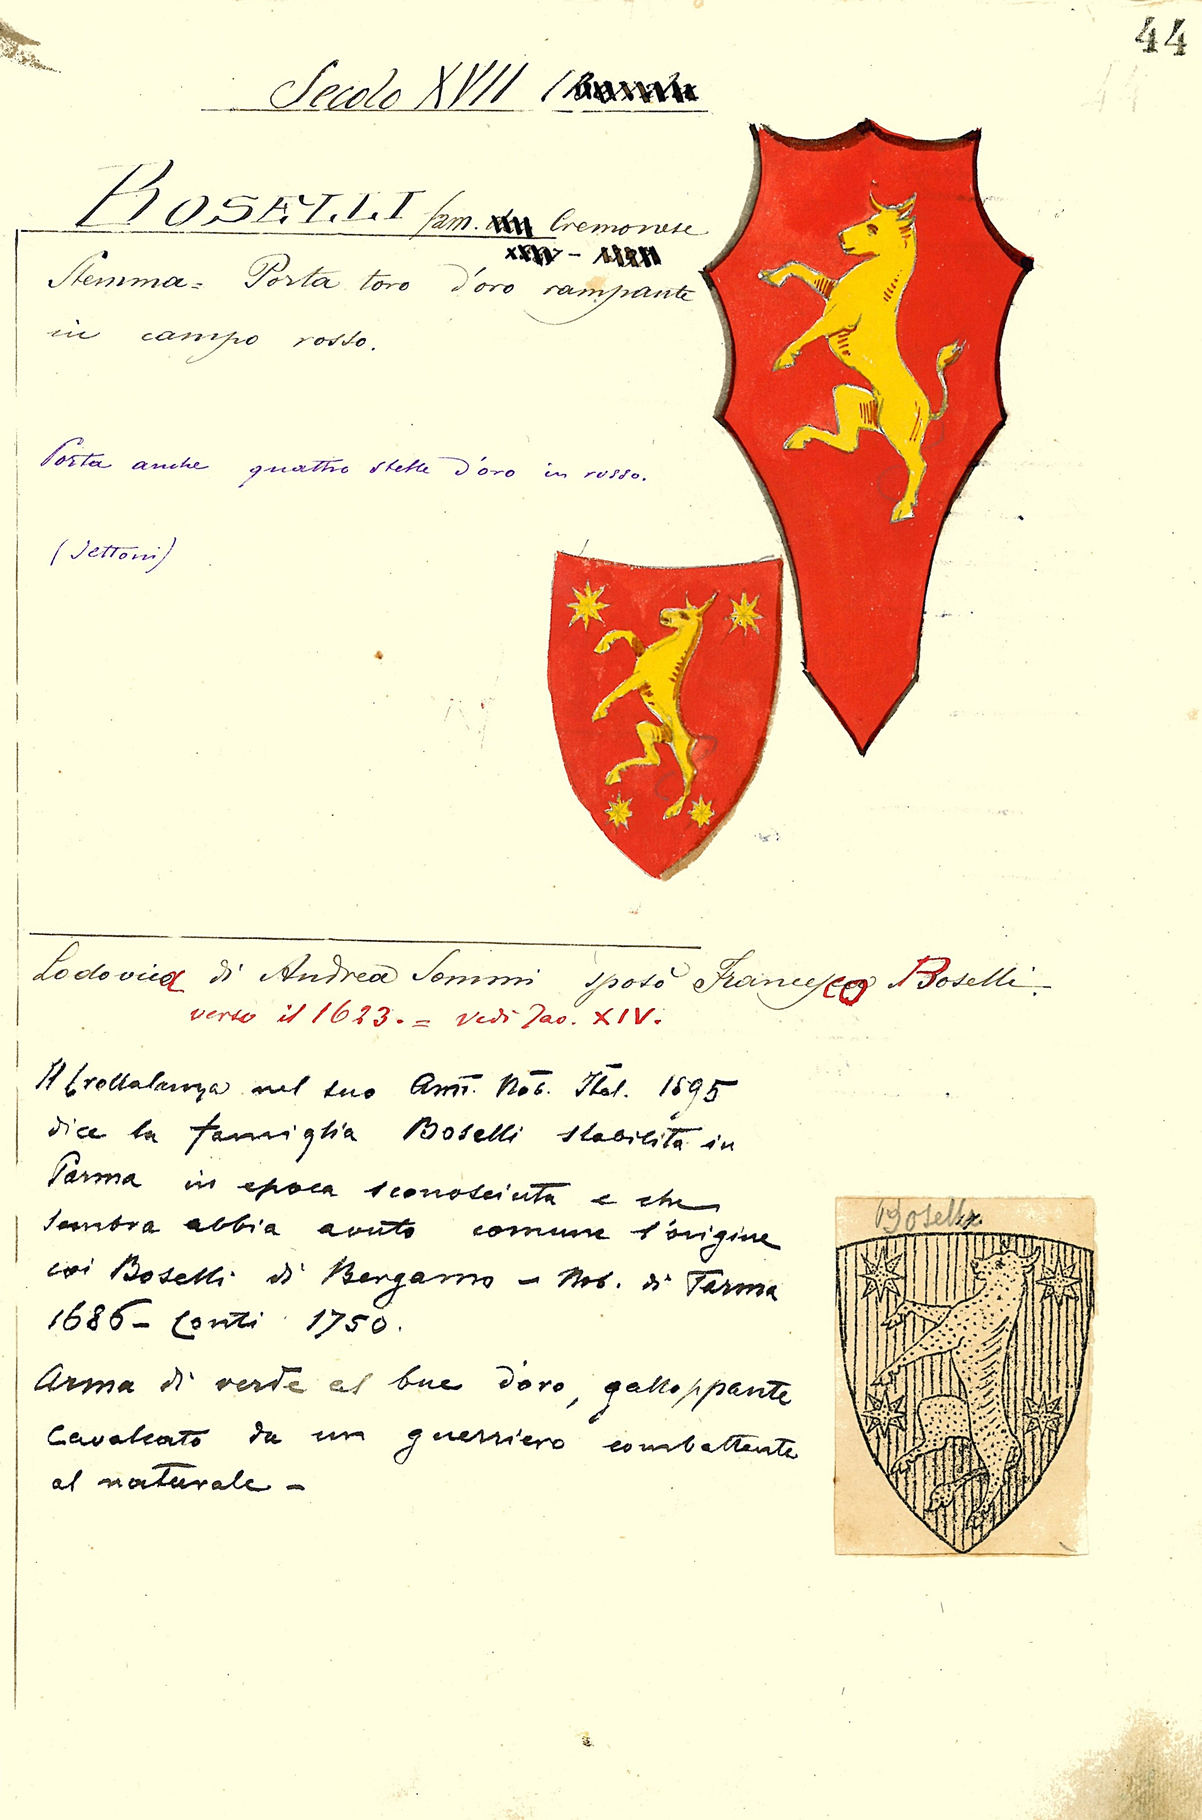 44
Secolo XVII
BOSELLI fam. Cremonese
Stemma = Porta toro d'oro rampante
in campo rosso.
Porta anche quattro stelle d'oro in rosso.
(Settoni)
Lodovica di Andrea Sommi sposò Francesco Boselli.-
verso il 1623. = vedi Tav. XIV.
Il Crollalanza nel suo Ann. Nob. Ital. 1895
dice la famiglia Boselli stabilita in
Parma in epoca sconosciuta e che
sembra abbia avuto comune l'origine
coi Boselli di Bergamo - Nob. di Parma
1686 - Conti 1750.
Arma di verde al bue d'oro, galloppante
cavalcato da un guerriero combattente
al naturale -
Boselli